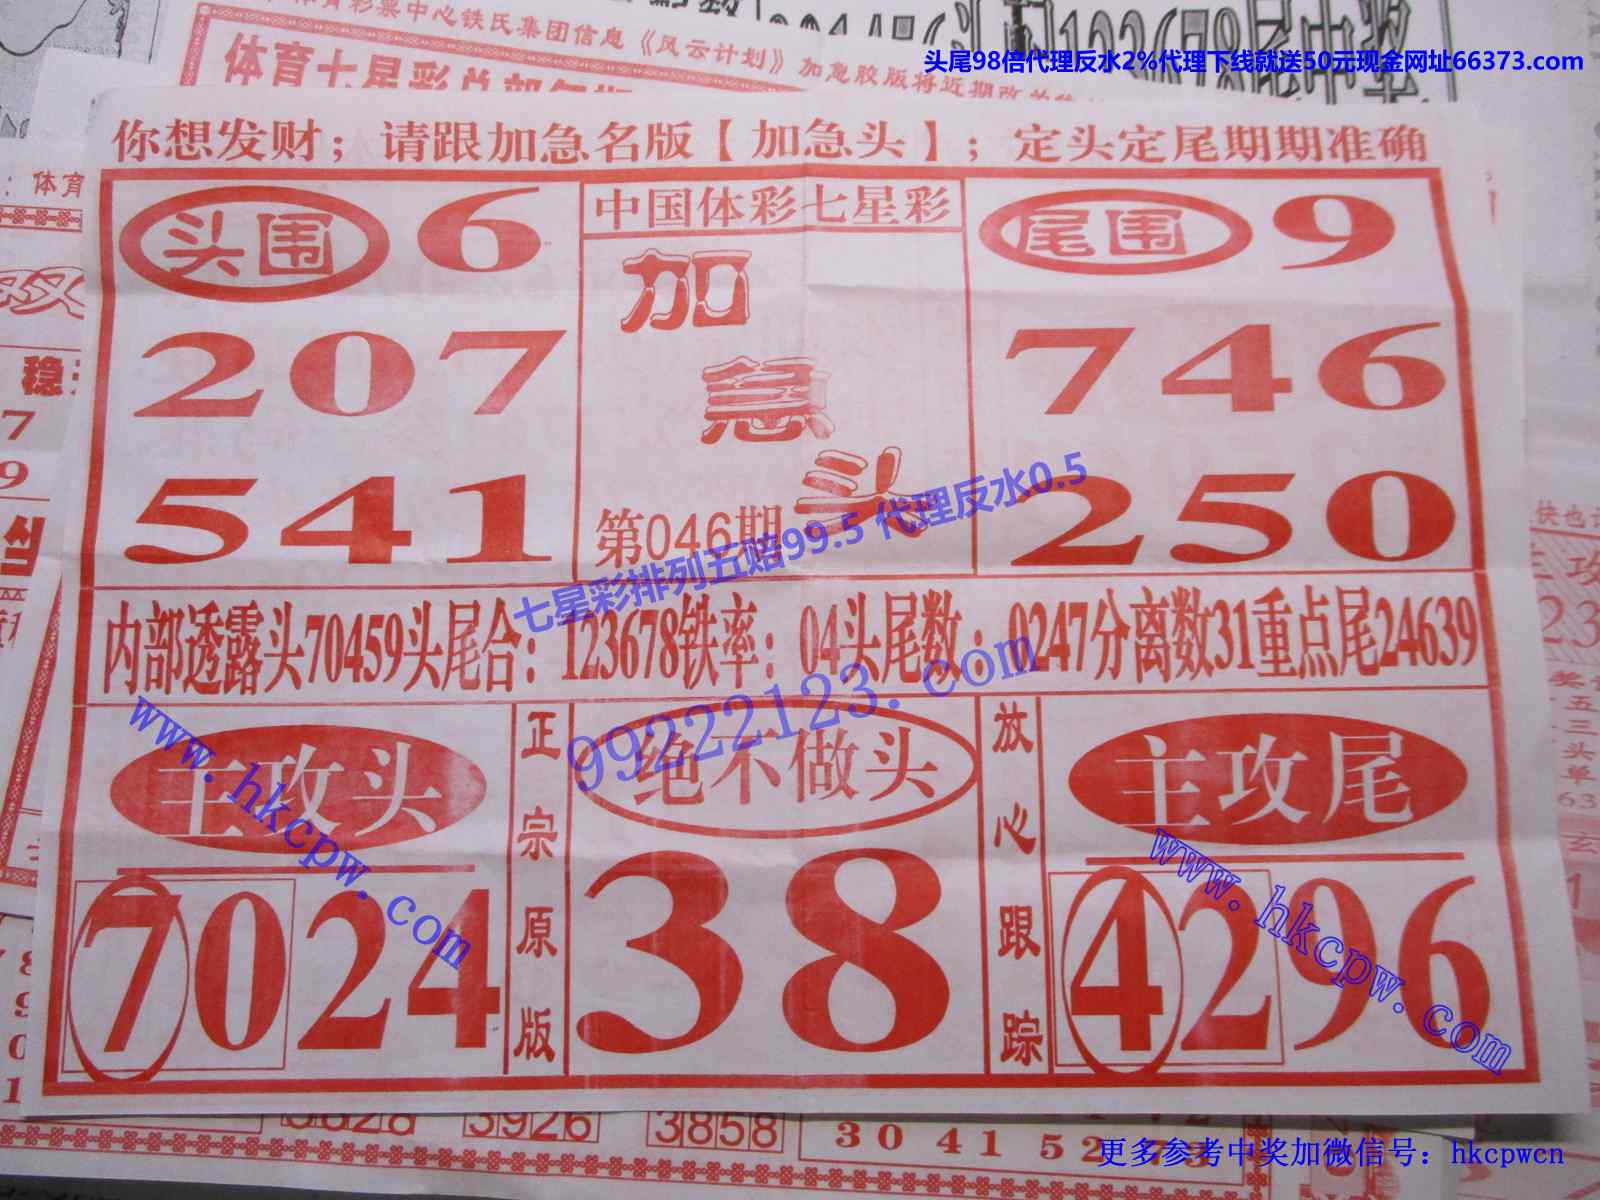 体育彩票中心铁氏集团信息《风云计划》加急胶版将近期改
头尾98倍代理反水2%代理下线就送50元现金网址66373.com
体育七星彩总部
你想发财；请跟加急名版【加急头】；定头定尾期期准确
：体育
头围 6
207
541
中国体彩七星彩
加
急
头
第046期
尾围 9
746
250
七星彩排列五赔99.5 代理反水0.5
内部透露头70459头尾合：123678铁率：04头尾数：0247分离数31重点尾24639
99222123.com
www.hkcpw.com
主攻头
7024
正宗原版
绝不做头
38
放心跟踪
主攻尾
4296
www.hkcpw.com
双
稳
7
9
快也
攻
23
五
三
头
单
63
玄
5828 3926 3858
30 41 52 73
更多参考中奖加微信号：hkcpwcn